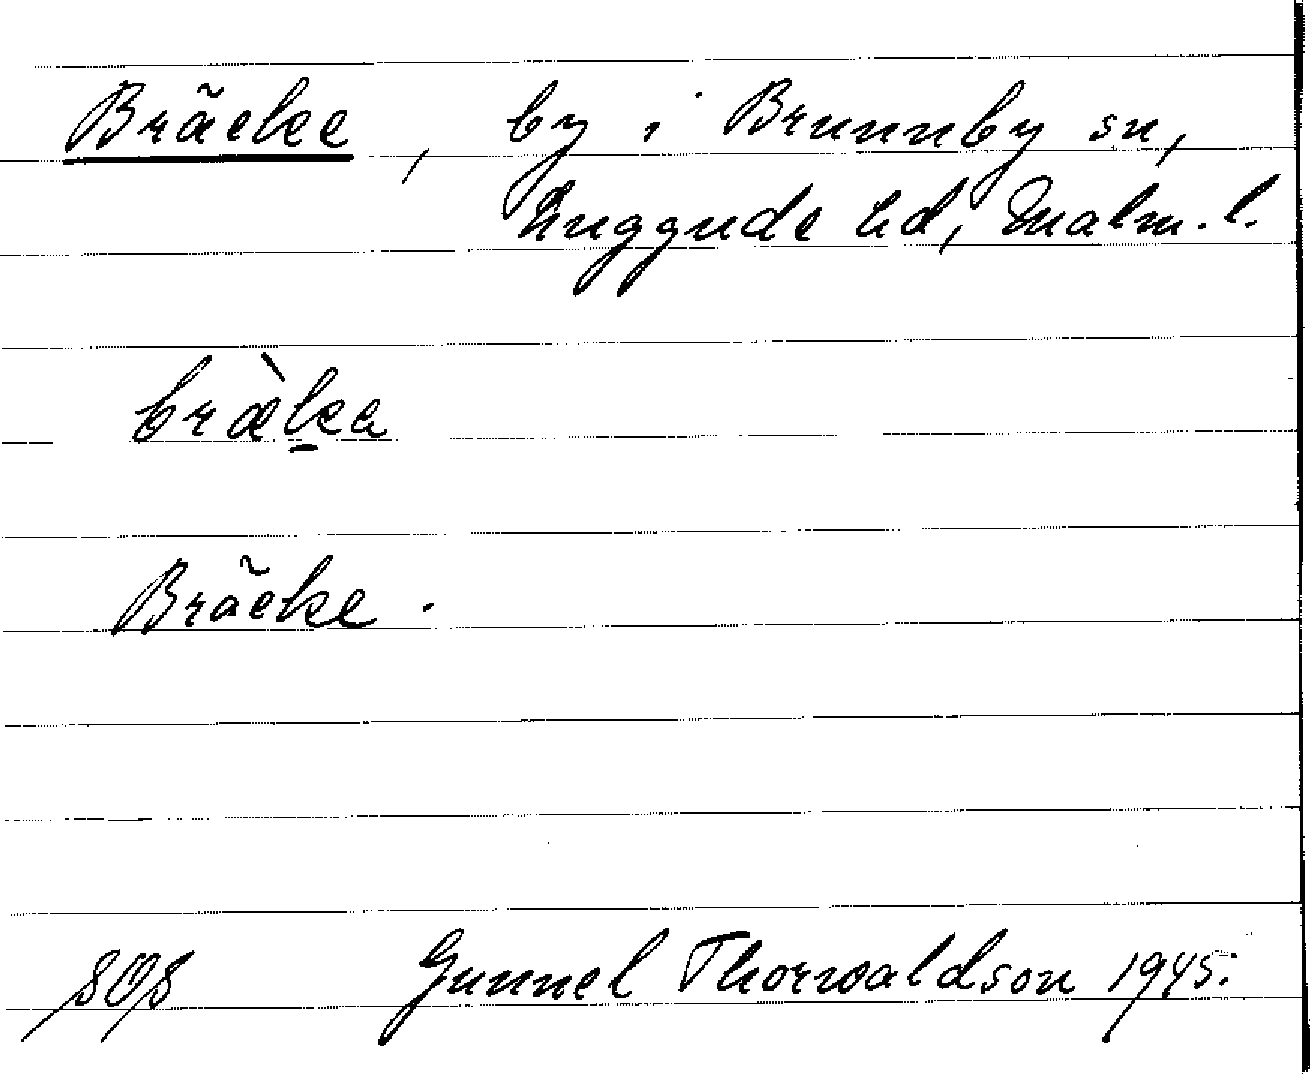 Bräcke, by i Brunnby sn,
Luggude hd, Malm. l.
bræ̀k̠a
Bräcke.
SOS Gunnel Thorwaldson 1945.